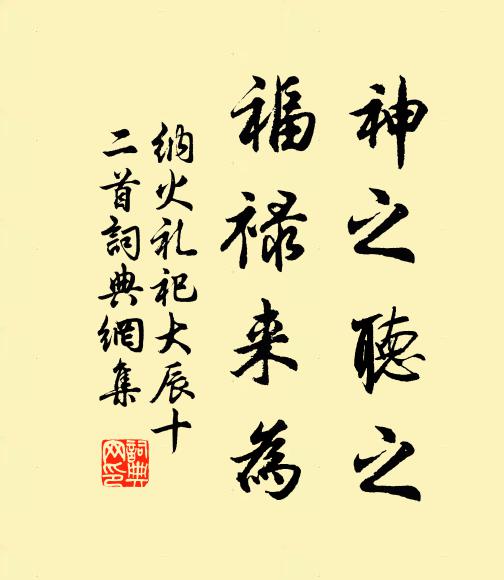 神之聽之
福祿来為
納火礼祀大辰十
二首詞典網集
詞典
网印